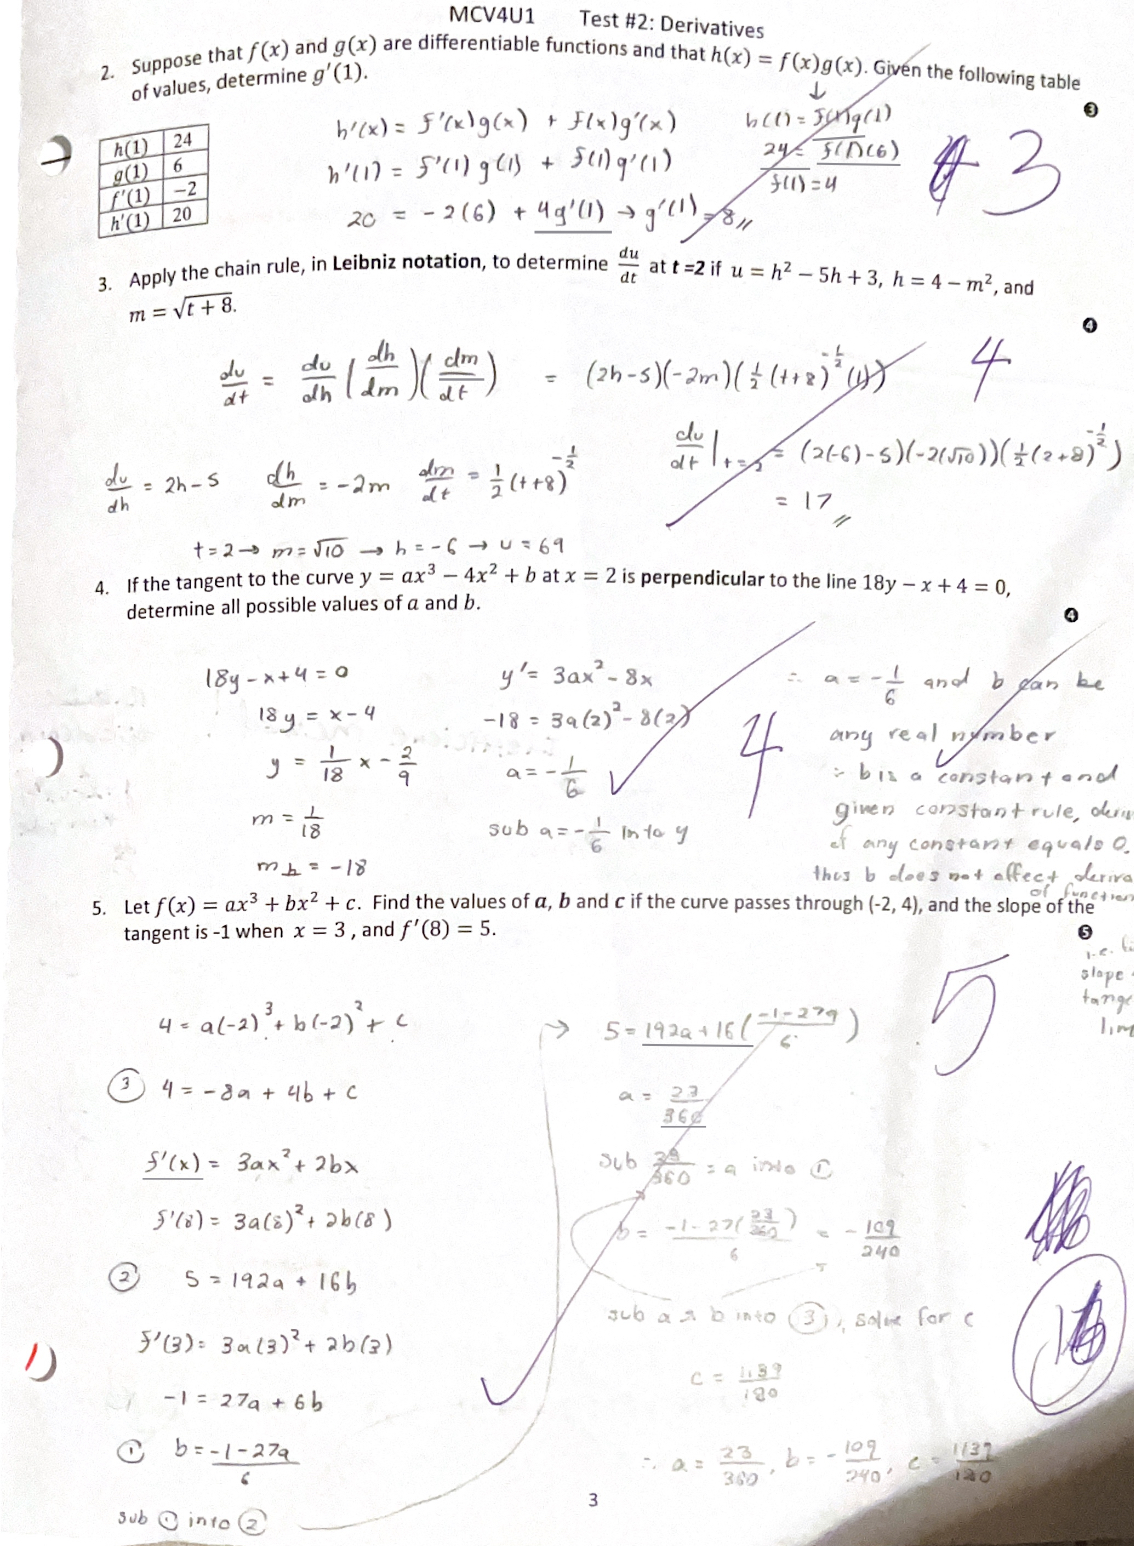 MCV4U1 Test #2: Derivatives
2. Suppose that f(x) and g(x) are differentiable functions and that h(x) = f(x)g(x). Given the following table
of values, determine g'(1).
❸
h(1) 24
g(1) 6
f'(1) −2
h'(1) 20
h'(x) = f'(x)g(x) + f(x)g'(x)
h'(1) = f'(1) g(1) + f(1) g'(1)
20 = -2(6) + 4g'(1) → g'(1) = 8 //
↓
h(1) = f(1)g(1)
24 = f(1)(6)
f(1) = 4
3
3. Apply the chain rule, in Leibniz notation, to determine du/dt at t =2 if u = h² − 5h + 3, h = 4 − m², and
m = √t + 8.
❹
du/dt = du/dh (dh/dm)(dm/dt) = (2h-5)(-2m)(1/2 (t+8)^-1/2 (1))
4
du/dh = 2h-5 dh/dm = -2m dm/dt = 1/2 (t+8)^-1/2
du/dt |t=2 = (2(-6)-5)(-2(√10))(1/2(2+8)^-1/2)
= 17 //
t=2 → m=√10 → h=-6 → u=69
4. If the tangent to the curve y = ax³ − 4x² + b at x = 2 is perpendicular to the line 18y − x + 4 = 0,
determine all possible values of a and b.
❹
18y - x + 4 = 0
18y = x - 4
y = 1/18 x - 2/9
m = 1/18
m⊥ = -18
y' = 3ax² - 8x
-18 = 3a(2)² - 8(2)
a = -1/6
sub a = -1/6 into y
4
∴ a = -1/6 and b can be
any real number
∵ b is a constant and
given constant rule, deriv
of any constant equals 0.
thus b does not affect deriva
of function
5. Let f(x) = ax³ + bx² + c. Find the values of a, b and c if the curve passes through (-2, 4), and the slope of the
tangent is -1 when x = 3 , and f'(8) = 5.
❺
i.e.
slope
tange
lim
4 = a(-2)³ + b(-2)² + c
③ 4 = -8a + 4b + c
f'(x) = 3ax² + 2bx
f'(8) = 3a(8)² + 2b(8)
② 5 = 192a + 16b
f'(3) = 3a(3)² + 2b(3)
-1 = 27a + 6b
① b = -1-27a/6
sub ① into ②
→ 5 = 192a + 16(-1-27a/6)
a = 23/360
sub 23/360 = a into ①
b = -1-27(23/360)/6 = -109/240
sub a & b into ③, solve for c
c = 1139/180
∴ a = 23/360, b = -109/240, c = 1139/180
5
3